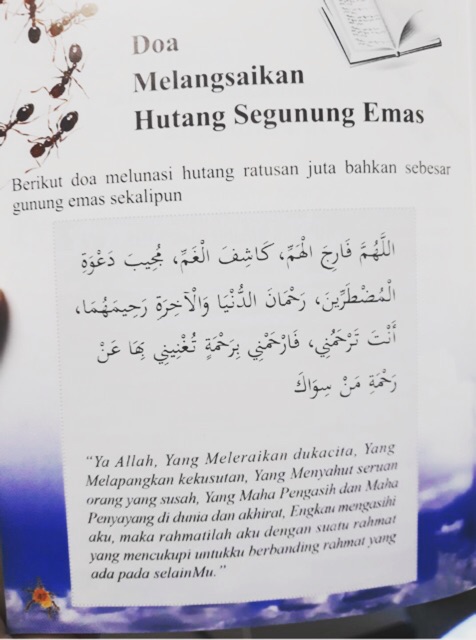 Doa
Melangsaikan
Hutang Segunung Emas
Berikut doa melunasi hutang ratusan juta bahkan sebesar
gunung emas sekalipun
اللَّهُمَّ فَارِجَ الْهَمِّ، كَاشِفَ الْغَمِّ، مُجِيبَ دَعْوَةِ
الْمُضْطَرِّينَ، رَحْمَانَ الدُّنْيَا وَالْآخِرَةِ رَحِيمَهُمَا،
أَنْتَ تَرْحَمُنِي، فَارْحَمْنِي بِرَحْمَةٍ تُغْنِينِي بِهَا عَنْ
رَحْمَةِ مَنْ سِوَاكَ
“Ya Allah, Yang Meleraikan dukacita, Yang
Melapangkan kekusutan, Yang Menyahut seruan
orang yang susah, Yang Maha Pengasih dan Maha
Penyayang di dunia dan akhirat, Engkau mengasihi
aku, maka rahmatilah aku dengan suatu rahmat
yang mencukupi untukku berbanding rahmat yang
ada pada selainMu.”